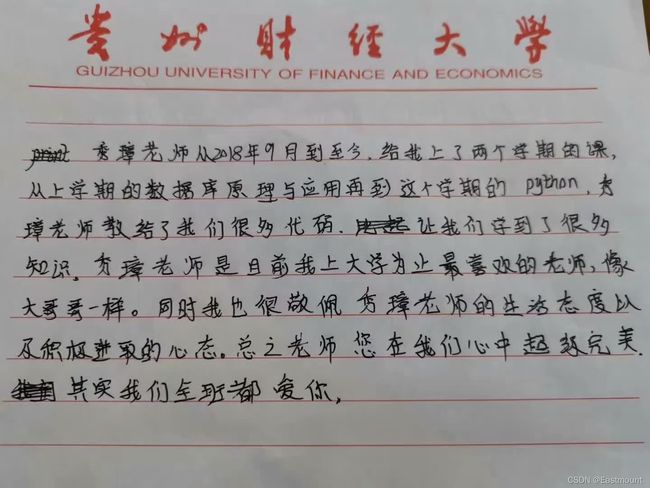 贵州财经大学
GUIZHOU UNIVERSITY OF FINANCE AND ECONOMICS
秀璋老师从2018年9月到至今，给我上了两个学期的课，
从上学期的数据库原理与应用再到这个学期的 python，秀
璋老师教给了我们很多代码，让我们学到了很多
知识。秀璋老师是目前我上大学为止最喜欢的老师，像
大哥哥一样。同时我也很敬佩秀璋老师的生活态度以
及积极进取的心态。总之老师您在我们心中超级完美.
其实我们全班都爱你。
CSDN @Eastmount